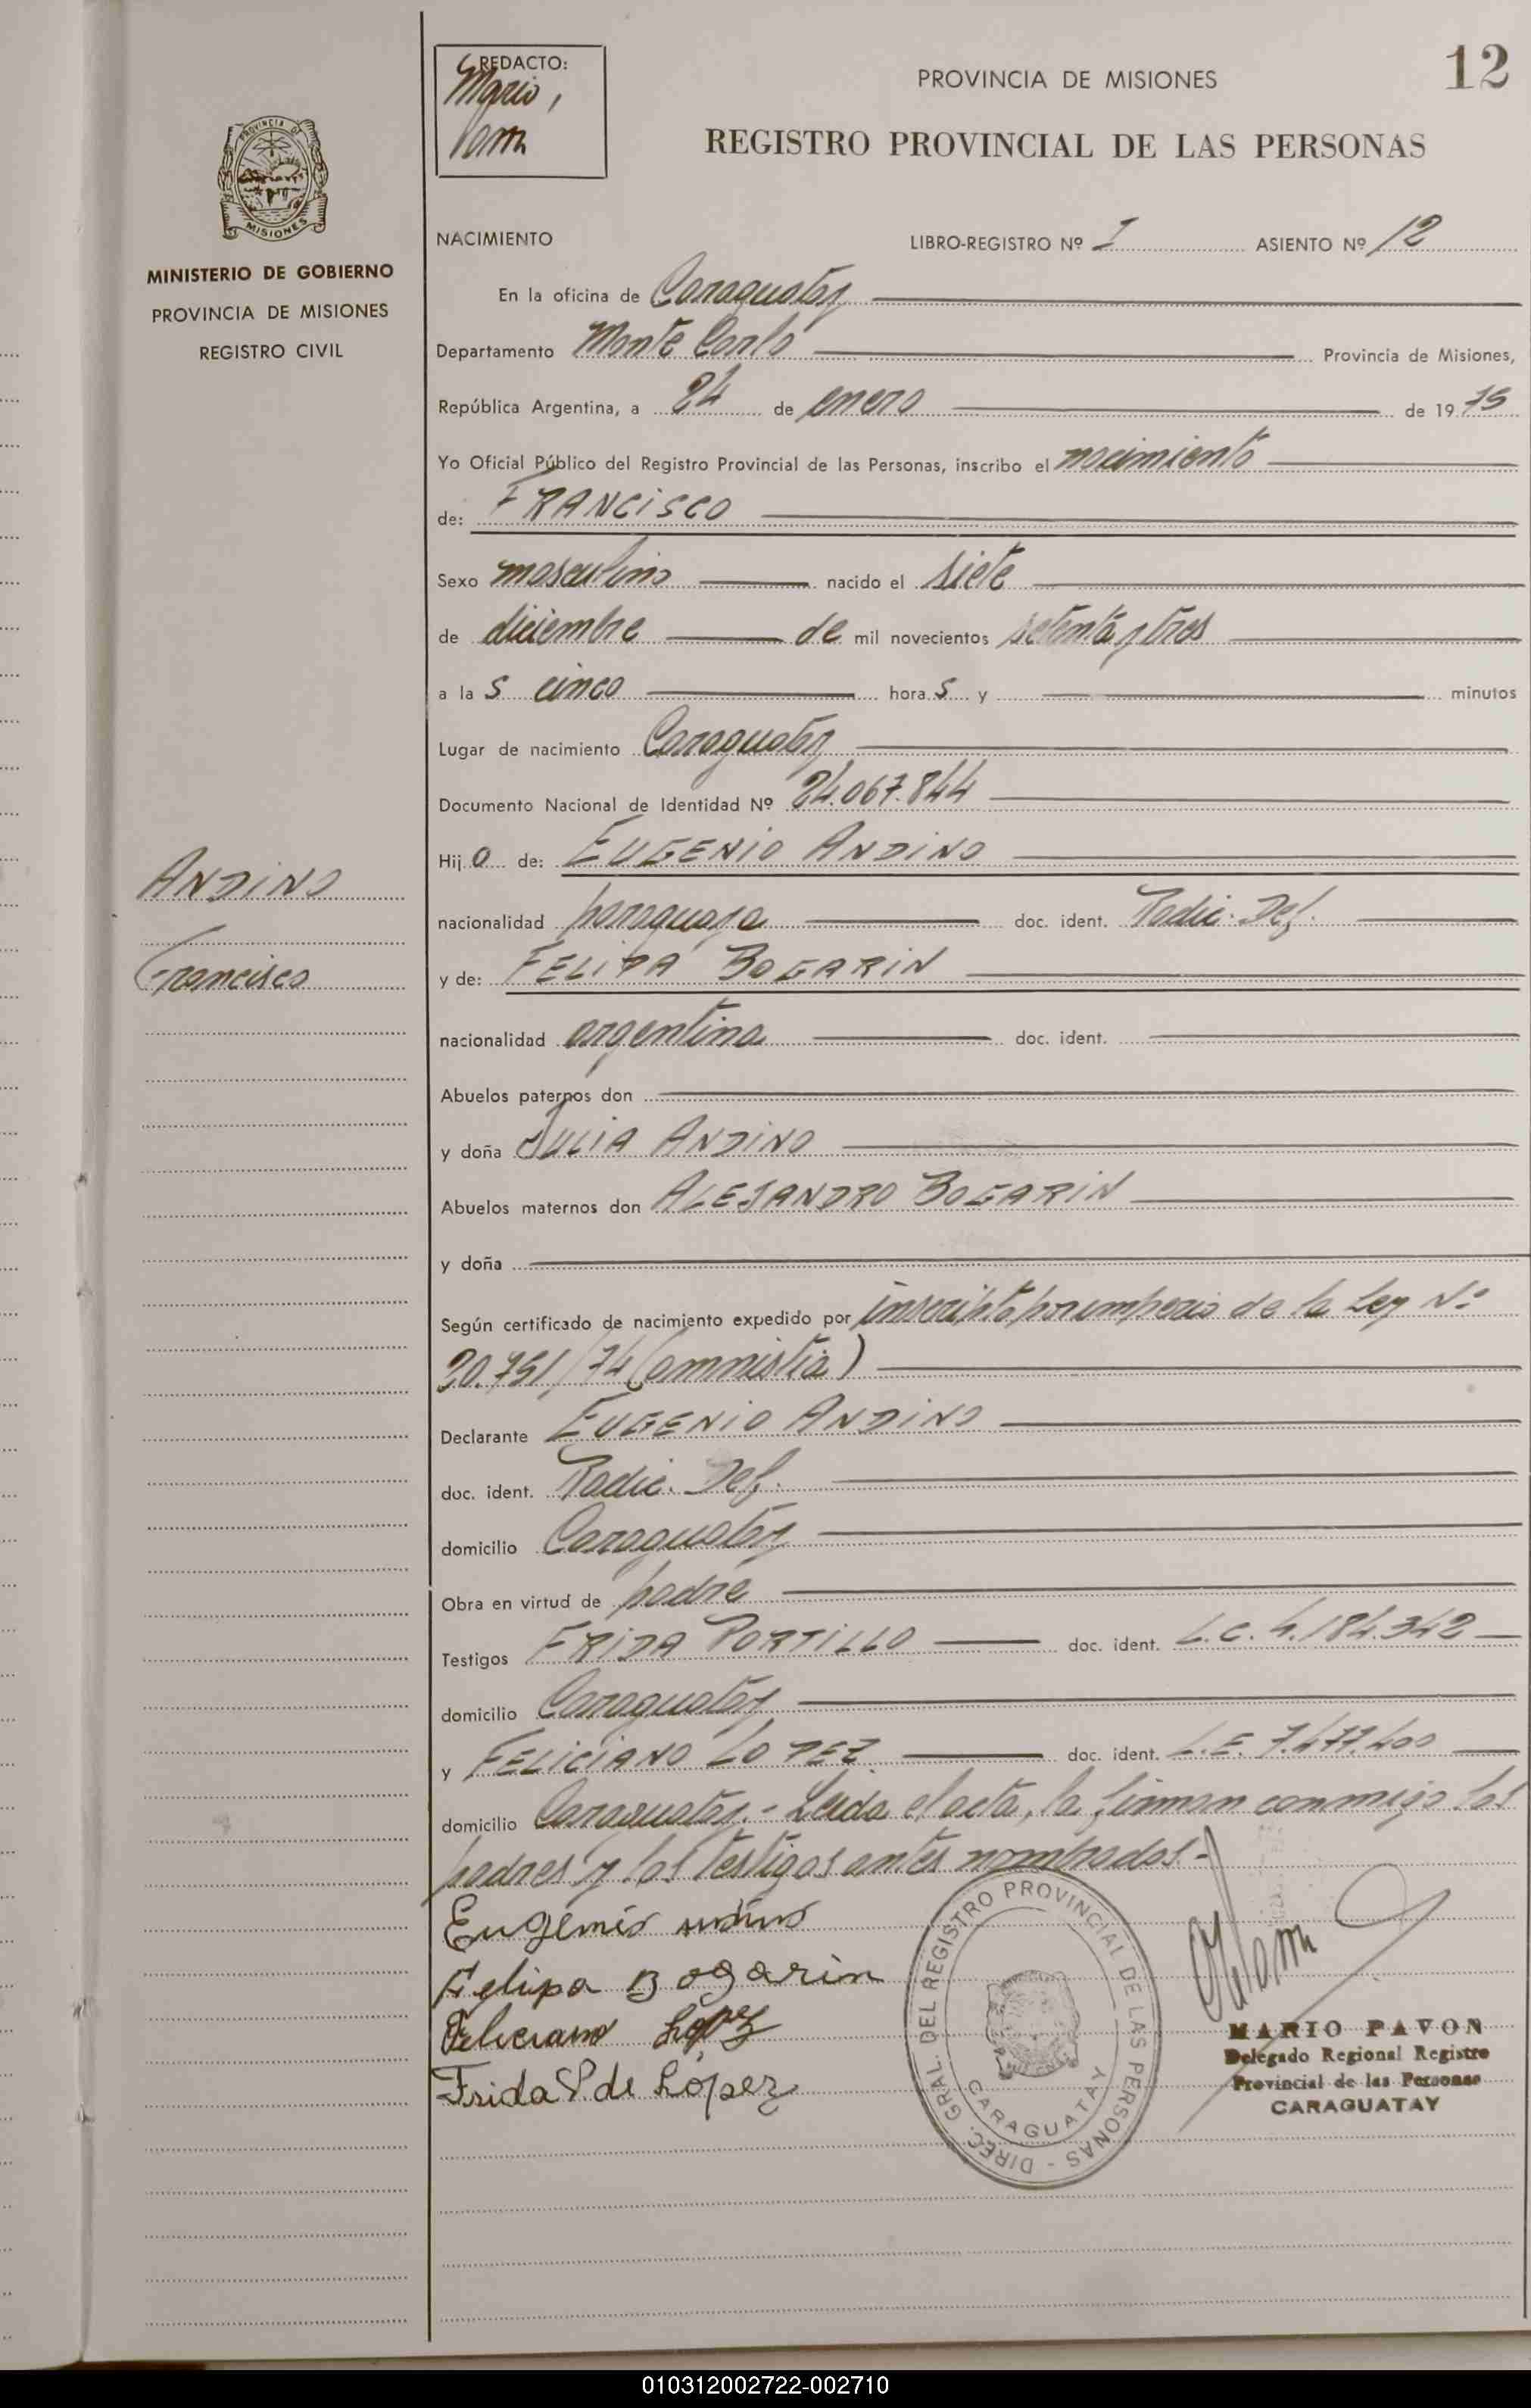 REDACTO:
Mario,
PROVINCIA DE MISIONES
12
REGISTRO PROVINCIAL DE LAS PERSONAS
PROVINCIA DE
MISIONES
MINISTERIO DE GOBIERNO
PROVINCIA DE MISIONES
REGISTRO CIVIL
NACIMIENTO LIBRO-REGISTRO Nº I ASIENTO Nº 12
En la oficina de Caraguatay
Departamento Monte Carlo Provincia de Misiones,
República Argentina, a 24 de enero de 1975
Yo Oficial Público del Registro Provincial de las Personas, inscribo el nacimiento
de: FRANCISCO
Sexo masculino nacido el siete
de diciembre de mil novecientos setenta y tres
a las cinco horas y minutos
Lugar de nacimiento Caraguatay
Documento Nacional de Identidad Nº 24.067.844
Hijo de: EUGENIO ANDINO
ANDINO
nacionalidad paraguaya doc. ident. Radic. Def.
Francisco
y de: FELIPA BOGARIN
nacionalidad argentina doc. ident.
Abuelos paternos don
y doña JULIA ANDINO
Abuelos maternos don ALEJANDRO BOGARIN
y doña
Según certificado de nacimiento expedido por inscripto por imperio de la Ley Nº
20.751/74 (amnistia)
Declarante EUGENIO ANDINO
doc. ident. Radic. Def.
domicilio Caraguatay
Obra en virtud de padre
Testigos FRIDA PORTILLO doc. ident. L.C. 4.184.342
domicilio Caraguatay
y FELICIANO LOPEZ doc. ident. L.E. 7.477.400
domicilio Caraguatay.- Leida el acta, la firman conmigo los
padres y los testigos antes nombrados.-
Eugenio Andino
Felipa Bogarin
Feliciano López
Frida P de López
DIREC. GRAL. DEL REGISTRO PROVINCIAL DE LAS PERSONAS -
CARAGUATAY
MARIO PAVON
Delegado Regional Registro
Provincial de las Personas
CARAGUATAY
010312002722-002710